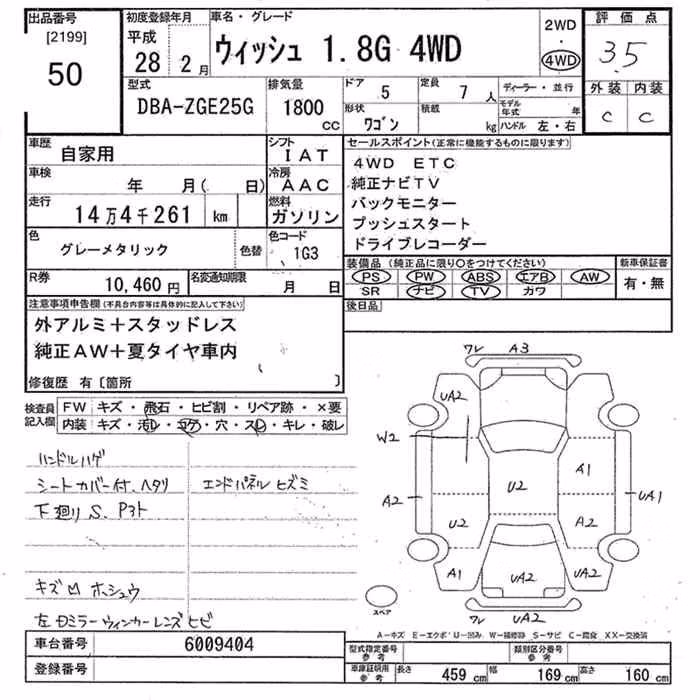 出品番号 初度登録年月 車名・グレード 2WD 評価点
[2199] 平成 ウィッシュ 1.8G 4WD ・ 3.5
50 28 2月 4WD
型式 排気量 ドア 5 定員 7人 ディーラー・並行 外装 内装
DBA-ZGE25G 1800cc 形状 ワゴン 積載 kg モデル年式 年 C C
ハンドル 左・右
車歴 自家用 シフト IAT セールスポイント(正常に機能するものに限ります)
車検 年 月( 日) 冷房 AAC 4WD ETC
走行 14万4千261 km 燃料 ガソリン 純正ナビTV
バックモニター
プッシュスタート
ドライブレコーダー
色 グレーメタリック 色替 色コード 1G3
装備品(純正品に限り○をつけてください) 新車保証書
PS PW ABS エアB AW 有・無
SR ナビ TV カワ
R券 10,460円 名変通知期限 月 日
後日品
注意事項申告欄(不具合内容等は具体的に記入して下さい)
外アルミ+スタッドレス
純正AW+夏タイヤ車内
修復歴 有〔箇所 〕
検査員記入欄 FW キズ・飛石・ヒビ割・リペア跡・×要
内装 キズ・汚レ・コゲ・穴・スレ・キレ・破レ
ハンドルハゲ
シートカバー付. ヘタリ エンドパネル ヒズミ
下廻り S. Pヌト
キズ 凹 ホシュウ
左ドミラーウィンカーレンズ ヒビ
ワレ A3
UA2
W2
A1
A2 U2 UA1
U2 A2
A1 UA2 UA2
ワレ UA2
スペア
A-キズ E-エクボ U-凹み W-補修跡 S-サビ C-腐食 XX-交換済
車台番号 6009404
登録番号
型式指定番号 参考 類別区分番号 参考
車庫証明用 参考 長さ 459cm 幅 169cm 高さ 160cm